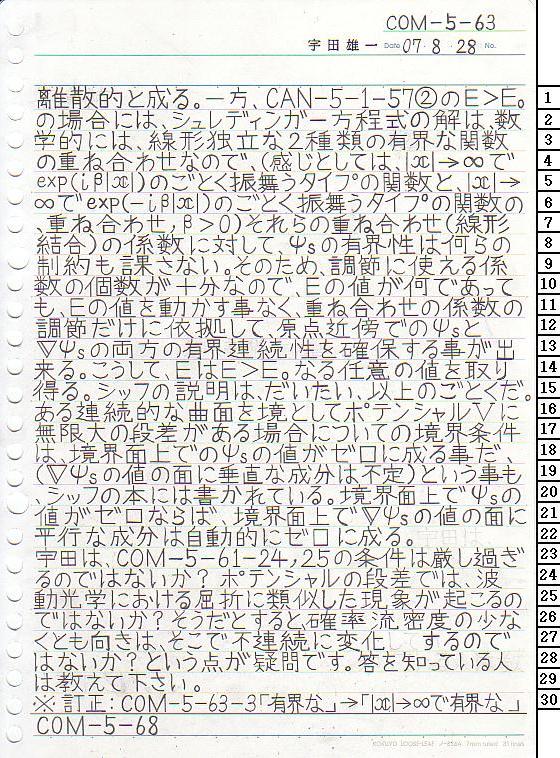 COM-5-63
宇田雄一 Date 07・8・28 No.
離散的と成る。一方、CAN-5-1-57②のE>E。
の場合には、シュレディンガー方程式の解は、数
学的には、線形独立な2種類の有界な関数
の重ね合わせなので、(感じとしては、|x|→∞で
exp(iβ|x|)のごとく振舞うタイプの関数と、|x|→
∞でexp(-iβ|x|)のごとく振舞うタイプの関数の
、重ね合わせ,β>0)それらの重ね合わせ(線形
結合)の係数に対して、Ψsの有界性は何らの
制約も課さない。そのため、調節に使える係
数の個数が十分なので、Eの値が何であって
も、Eの値を動かす事なく、重ね合わせの係数の
調節だけに依拠して、原点近傍でのΨsと
∇Ψsの両方の有界連続性を確保する事が出
来る。こうして、EはE>E。なる任意の値を取り
得る。シッフの説明は、だいたい、以上のごとくだ。
ある連続的な曲面を境としてポテンシャルVに
無限大の段差がある場合についての境界条件
は、境界面上でのΨsの値がゼロに成る事だ、
(∇Ψsの値の面に垂直な成分は不定)という事も
、シッフの本には書かれている。境界面上でΨsの
値がゼロならば、境界面上で∇Ψsの値の面に
平行な成分は自動的にゼロに成る。
宇田は、COM-5-61-24,25の条件は厳し過ぎ
るのではないか? ポテンシャルの段差では、波
動光学における屈折に類似した現象が起こるの
ではないか?そうだとすると、確率流密度の少な
くとも向きは、そこで不連続に変化 するので
はないか?という点が疑問です。答を知っている人
は教えて下さい。
※訂正:COM-5-63-3「有界な」→「|x|→∞で有界な」
COM-5-68
KOKUYO LOOSE-LEAF ノ-836A 7mm ruled 31 lines
1
2
3
4
5
6
7
8
9
10
11
12
13
14
15
16
17
18
19
20
21
22
23
24
25
26
27
28
29
30